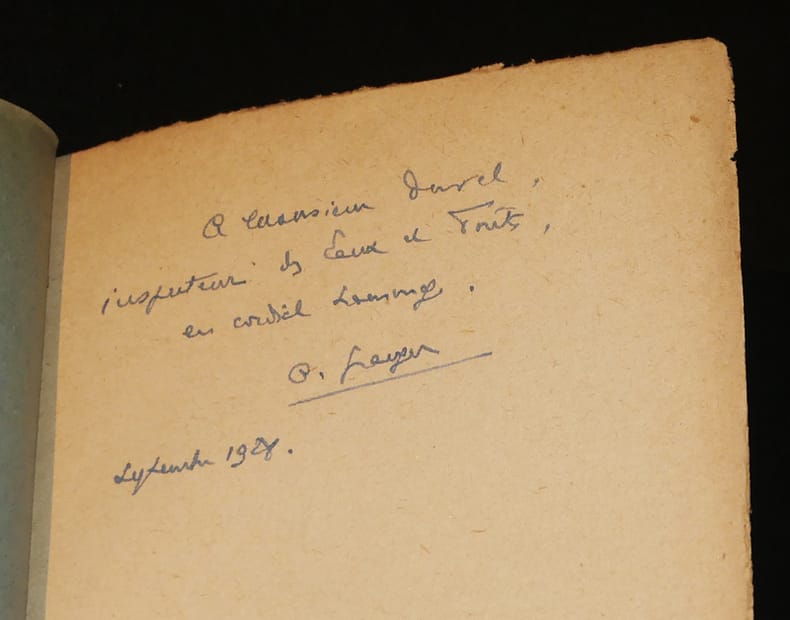 A Monsieur
inspecteur des Eaux et Forêts,
en cordial hommage.
Septembre 1928.